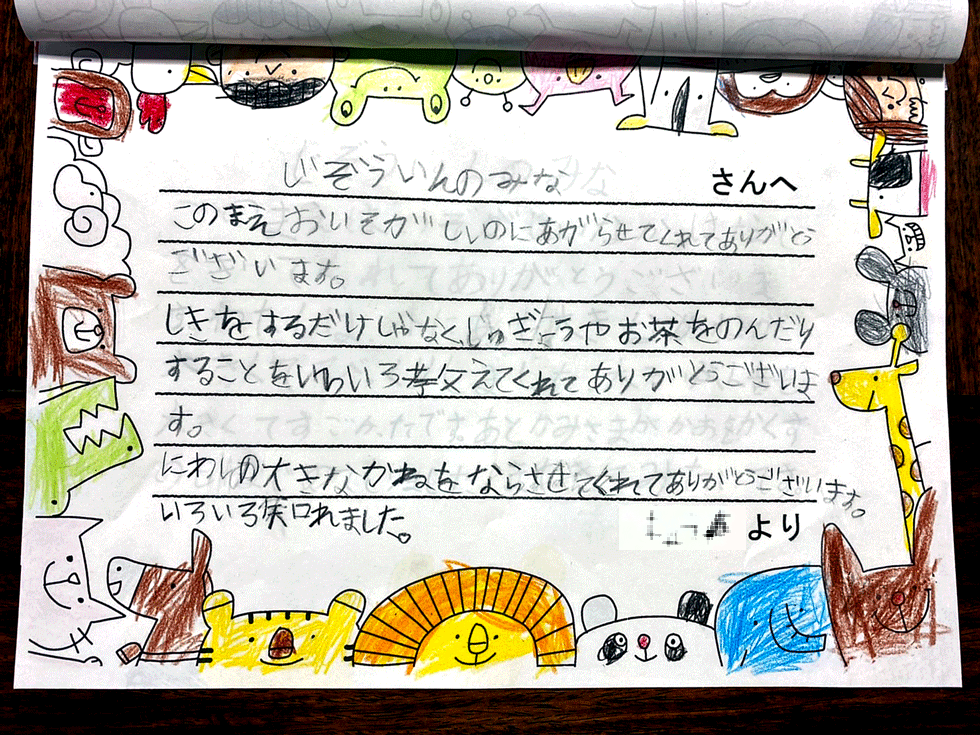 じぞういんのみな さんへ
このまえおいそがしいのにあがらせてくれてありがとう
ございます。
しきをするだけじゃなくじゅぎょうやお茶をのんだり
することをいろいろ教えてくれてありがとうございま
す。
にわの大きなかねをならさせてくれてありがとうございます。
いろいろ知れました。
より